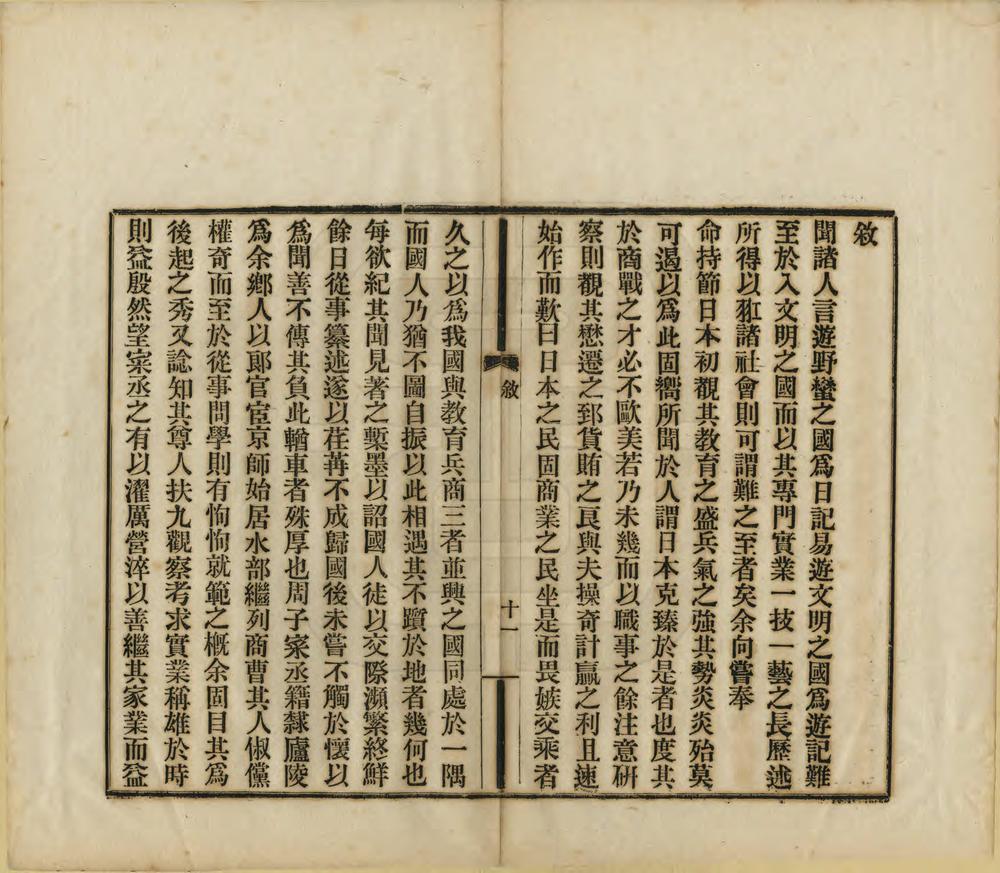 敘
聞諸人言遊野蠻之國爲日記易遊文明之國爲遊記難
至於入文明之國而以其專門實業一技一藝之長歷述
所得以矼諸社會則可謂難之至者矣余向嘗奉
命持節日本初觀其教育之盛兵氣之強其勢炎炎殆莫
可遏以爲此固嚮所聞於人謂日本克臻於是者也度其
於商戰之才必不歐美若乃未幾而以職事之餘注意研
察則觀其懋遷之郅貨賄之良與夫操奇計贏之利且速
始作而歎曰日本之民固商業之民坐是而畏嫉交乘者
敘
十一
久之以爲我國與教育兵商三者並興之國同處於一隅
而國人乃猶不圖自振以此相遇其不躓於地者幾何也
每欲紀其聞見著之槧墨以詔國人徒以交際瀕繁終鮮
餘日從事纂述遂以荏苒不成歸國後未嘗不觸於懷以
爲聞善不傳其負此輶車者殊厚也周子寀丞籍隸廬陵
爲余鄉人以郎官宦京師始居水部繼列商曹其人俶儻
權奇而至於從事問學則有恂恂就範之概余固目其爲
後起之秀又諗知其尊人扶九觀察考求實業稱雄於時
則益殷然望寀丞之有以濯厲營淬以善繼其家業而益